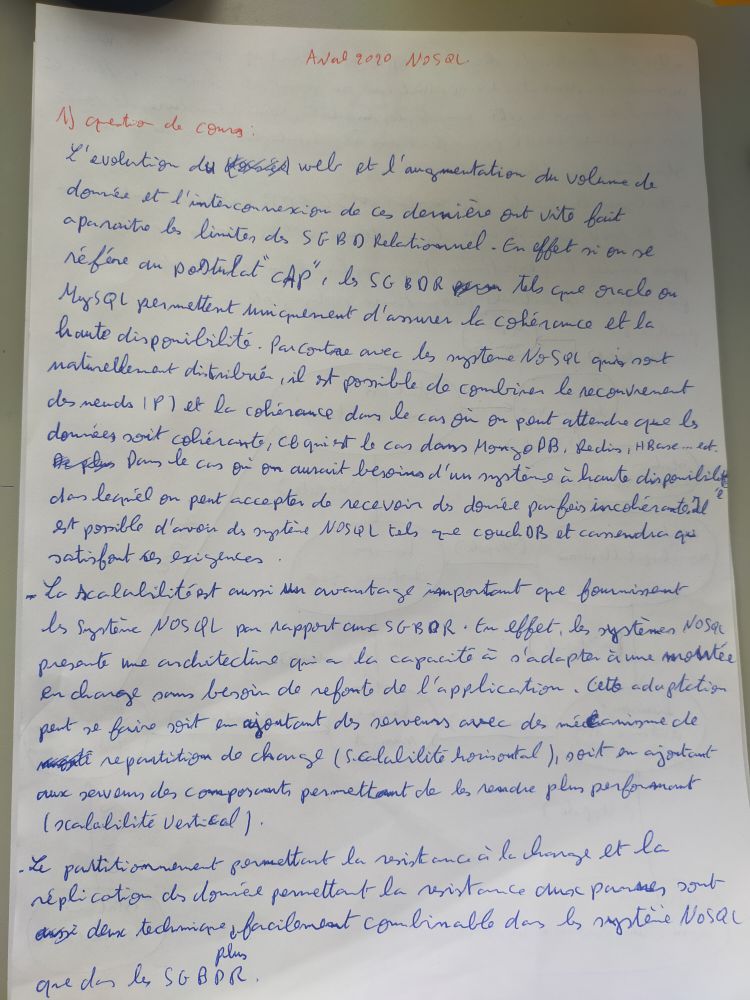 Aval 2020 NOSQL
1) question de cours :
L'evolution du web et l'augmentation du volume de
donnée et l'interconnexion de ces dernière ont vite fait
aparaitre les limites des SGBD Relationnel. En effet si on se
référe au postulat "CAP", les SGBDR tels que oracle ou
MySQL permettent uniquement d'assurer la cohérance et la
haute disponibilité. Parcontre avec les système NoSQL qui sont
naturellement distribuée, il est possible de combiner le recouvrement
des neuds (P) et la cohérance dans le cas où on peut attendre que les
données soit cohérante, ce qui est le cas dans MongoDB, Redis, HBase... ect.
Dans le cas où on aurait besoins d'un système à haute disponibilité
dans lequél on peut accepter de recevoir des donnée parfois incohérante. Il
est possible d'avoir des système NOSQL tels que couchDB et cassendra qui
satisfont ses exigences.
- La scalabilité est aussi un avantage important que fournissent
les Système NOSQL par rapport aux SGBDR. En effet, les systèmes NOSQL
presente une architecture qui a la capacité à s'adapter à une montée
en charge sans besoin de refonte de l'application. Cette adaptation
peut se faire soit en ajoutant des serveurs avec des mécanisme de
repartition de charge (Scalabilité horisontal), soit en ajoutant
aux serveurs des composants permettant de les rendre plus performant
(scalabilité Vertical).
- Le partitionnement permettant la resistance à la charge et la
réplication des donnée permettant la resistance aux pannes sont
deux technique facilement combinable dans les système NOSQL
plus
que dans les SGBDR.